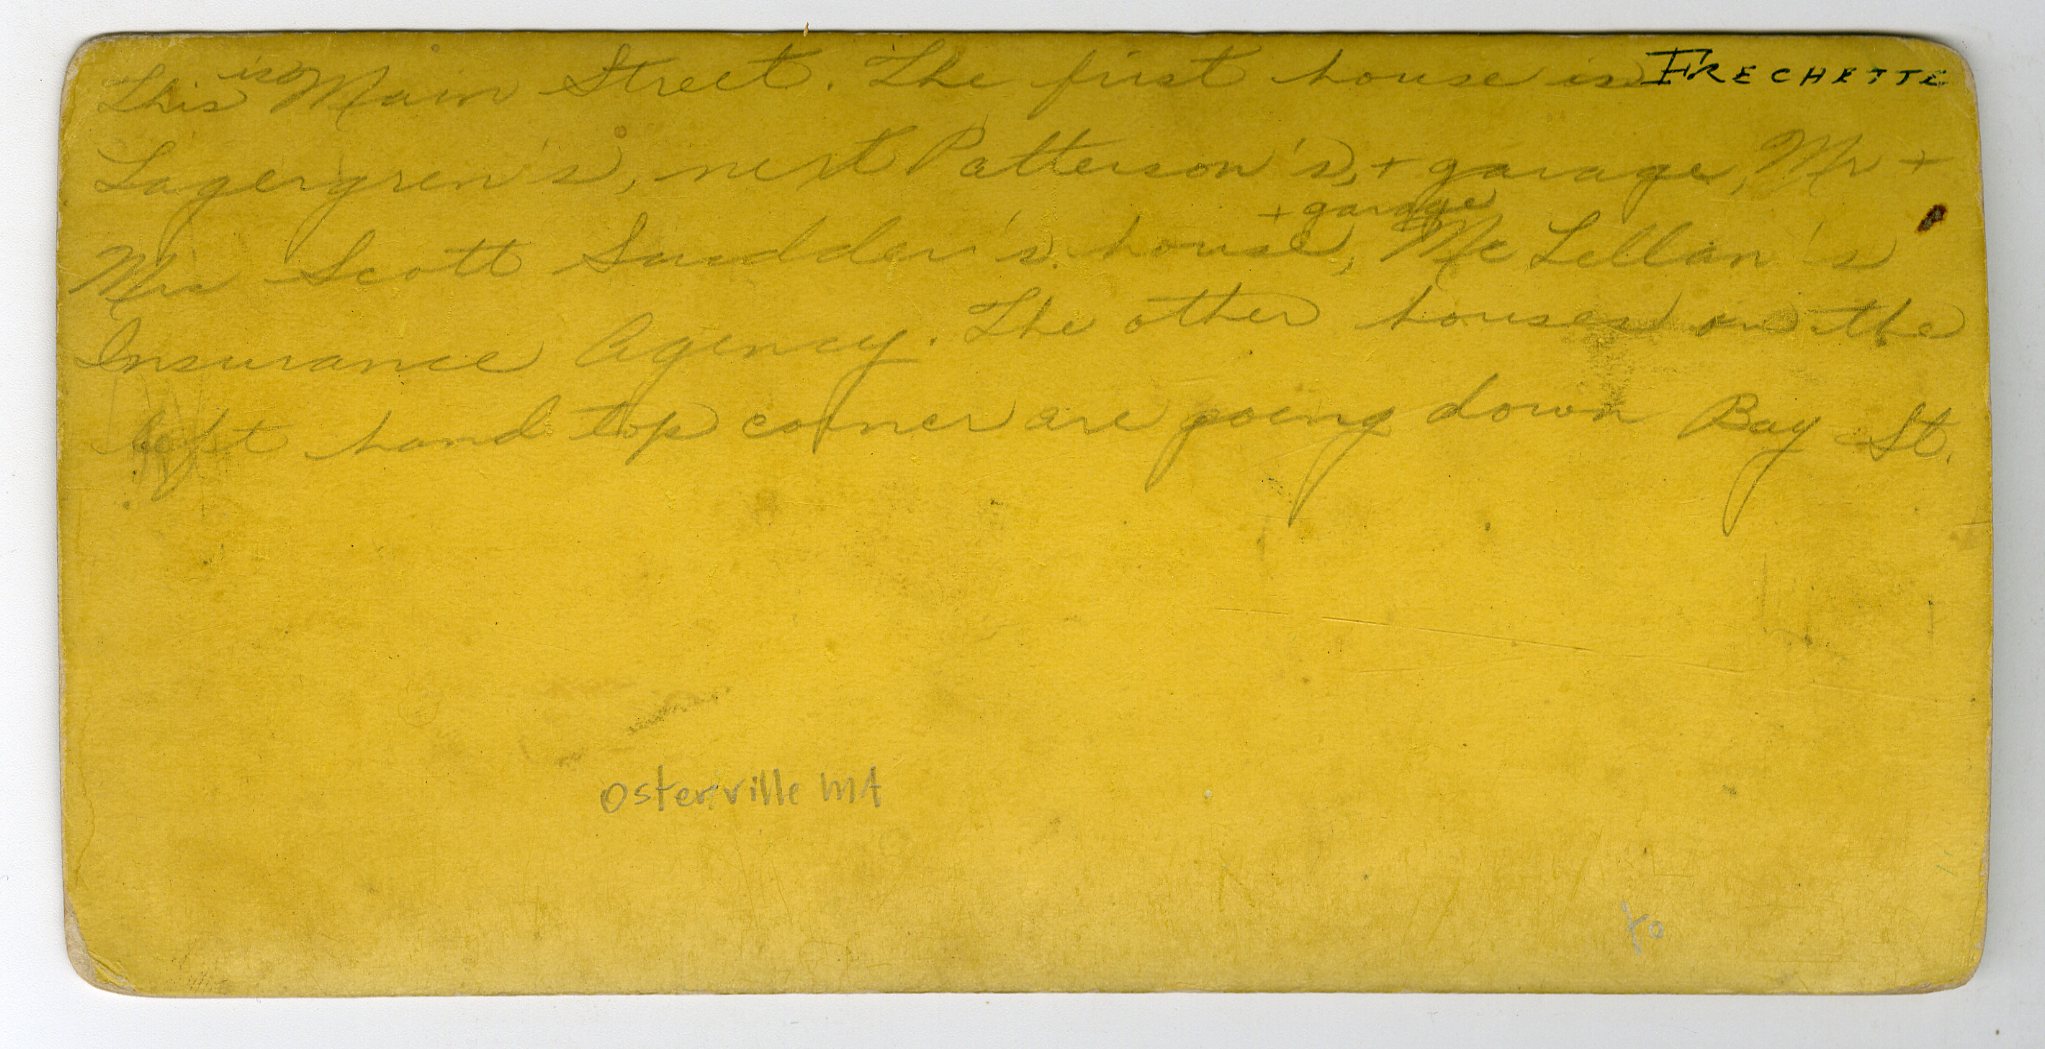 This is Main Street. The first house is FRECHETTE
Lagergren's, next Patterson's, + garage, Mr +
Mrs Scott Scudder's house, + garage Mc Lellan's
Insurance Agency. The other houses on the
left hand top corner are going down Bay St.
Osterville MA